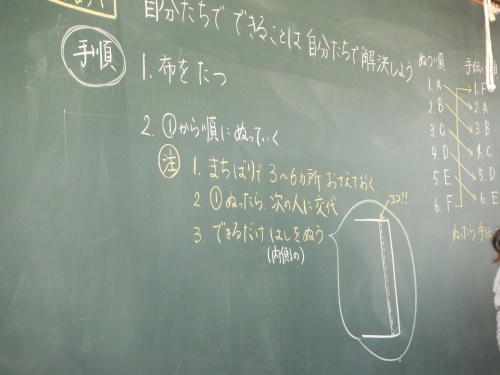 自分たちでできることは自分たちで解決しよう
手順
1. 布をたつ
2. ①から順にぬっていく
注
1. まちばりで 3~6カ所 おさえておく
2. ①ぬったら 次の人に交代
3. できるだけ はしをぬう
(内側の)
ココ!!
ぬう順
1. A
2. B
3. C
4. D
5. E
6. F
手伝い
1. F
2. A
3. B
4. C
5. D
6. E
ぬったら手伝